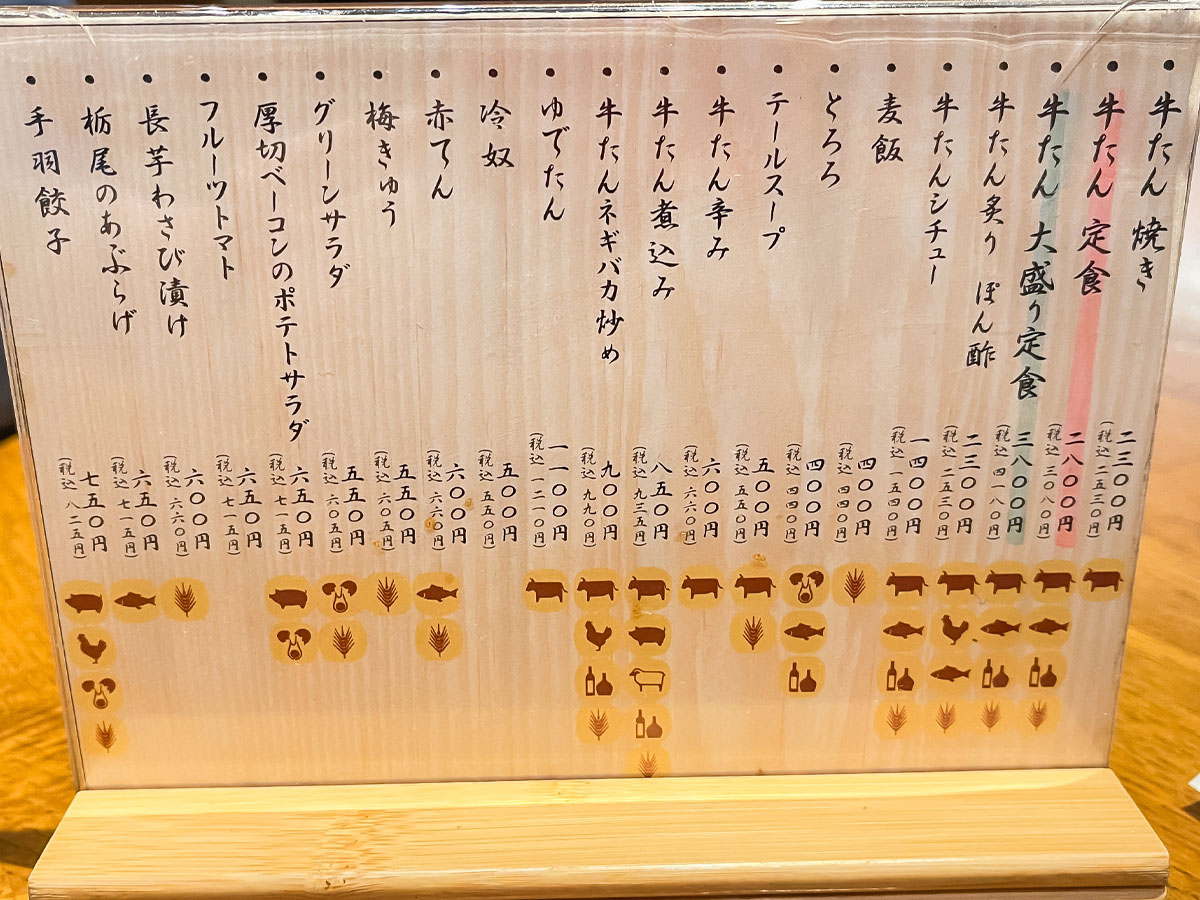 ・牛たん 焼き 二三〇〇円
(税込 二五三〇円)
・牛たん 定食 二八〇〇円
(税込 三〇八〇円)
・牛たん 大盛り定食 三八〇〇円
(税込 四一八〇円)
・牛たん炙り ぽん酢 二三〇〇円
(税込 二五三〇円)
・牛たんシチュー 一四〇〇円
(税込 一五四〇円)
・麦飯 四〇〇円
(税込 四四〇円)
・とろろ 四〇〇円
(税込 四四〇円)
・テールスープ 五〇〇円
(税込 五五〇円)
・牛たん辛み 六〇〇円
(税込 六六〇円)
・牛たん煮込み 八五〇円
(税込 九三五円)
・牛たんネギバカ炒め 九〇〇円
(税込 九九〇円)
・ゆでたん 一一〇〇円
(税込 一二一〇円)
・冷奴 五〇〇円
(税込 五五〇円)
・赤てん 六〇〇円
(税込 六六〇円)
・梅きゅう 五五〇円
(税込 六〇五円)
・グリーンサラダ 五五〇円
(税込 六〇五円)
・厚切ベーコンのポテトサラダ 六五〇円
(税込 七一五円)
・フルーツトマト 六五〇円
(税込 七一五円)
・長芋わさび漬け 六〇〇円
(税込 六六〇円)
・栃尾のあぶらげ 六五〇円
(税込 七一五円)
・手羽餃子 七五〇円
(税込 八二五円)